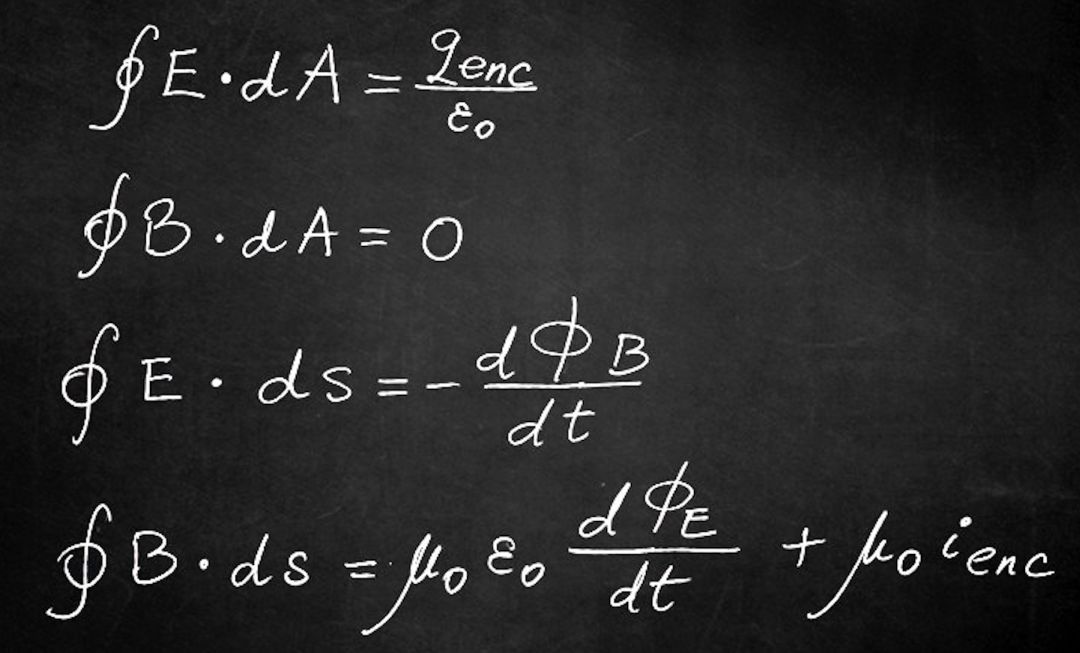 ∮E·dA = qenc/ε₀
∮B·dA = 0
∮E·ds = -dΦB/dt
∮B·ds = μ₀ε₀ dΦE/dt + μ₀ienc